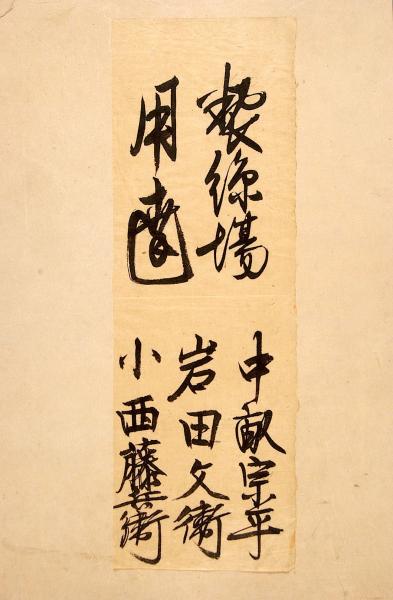 製絲場
用達
中畝宗平
岩田文衛
小西藤兵衛